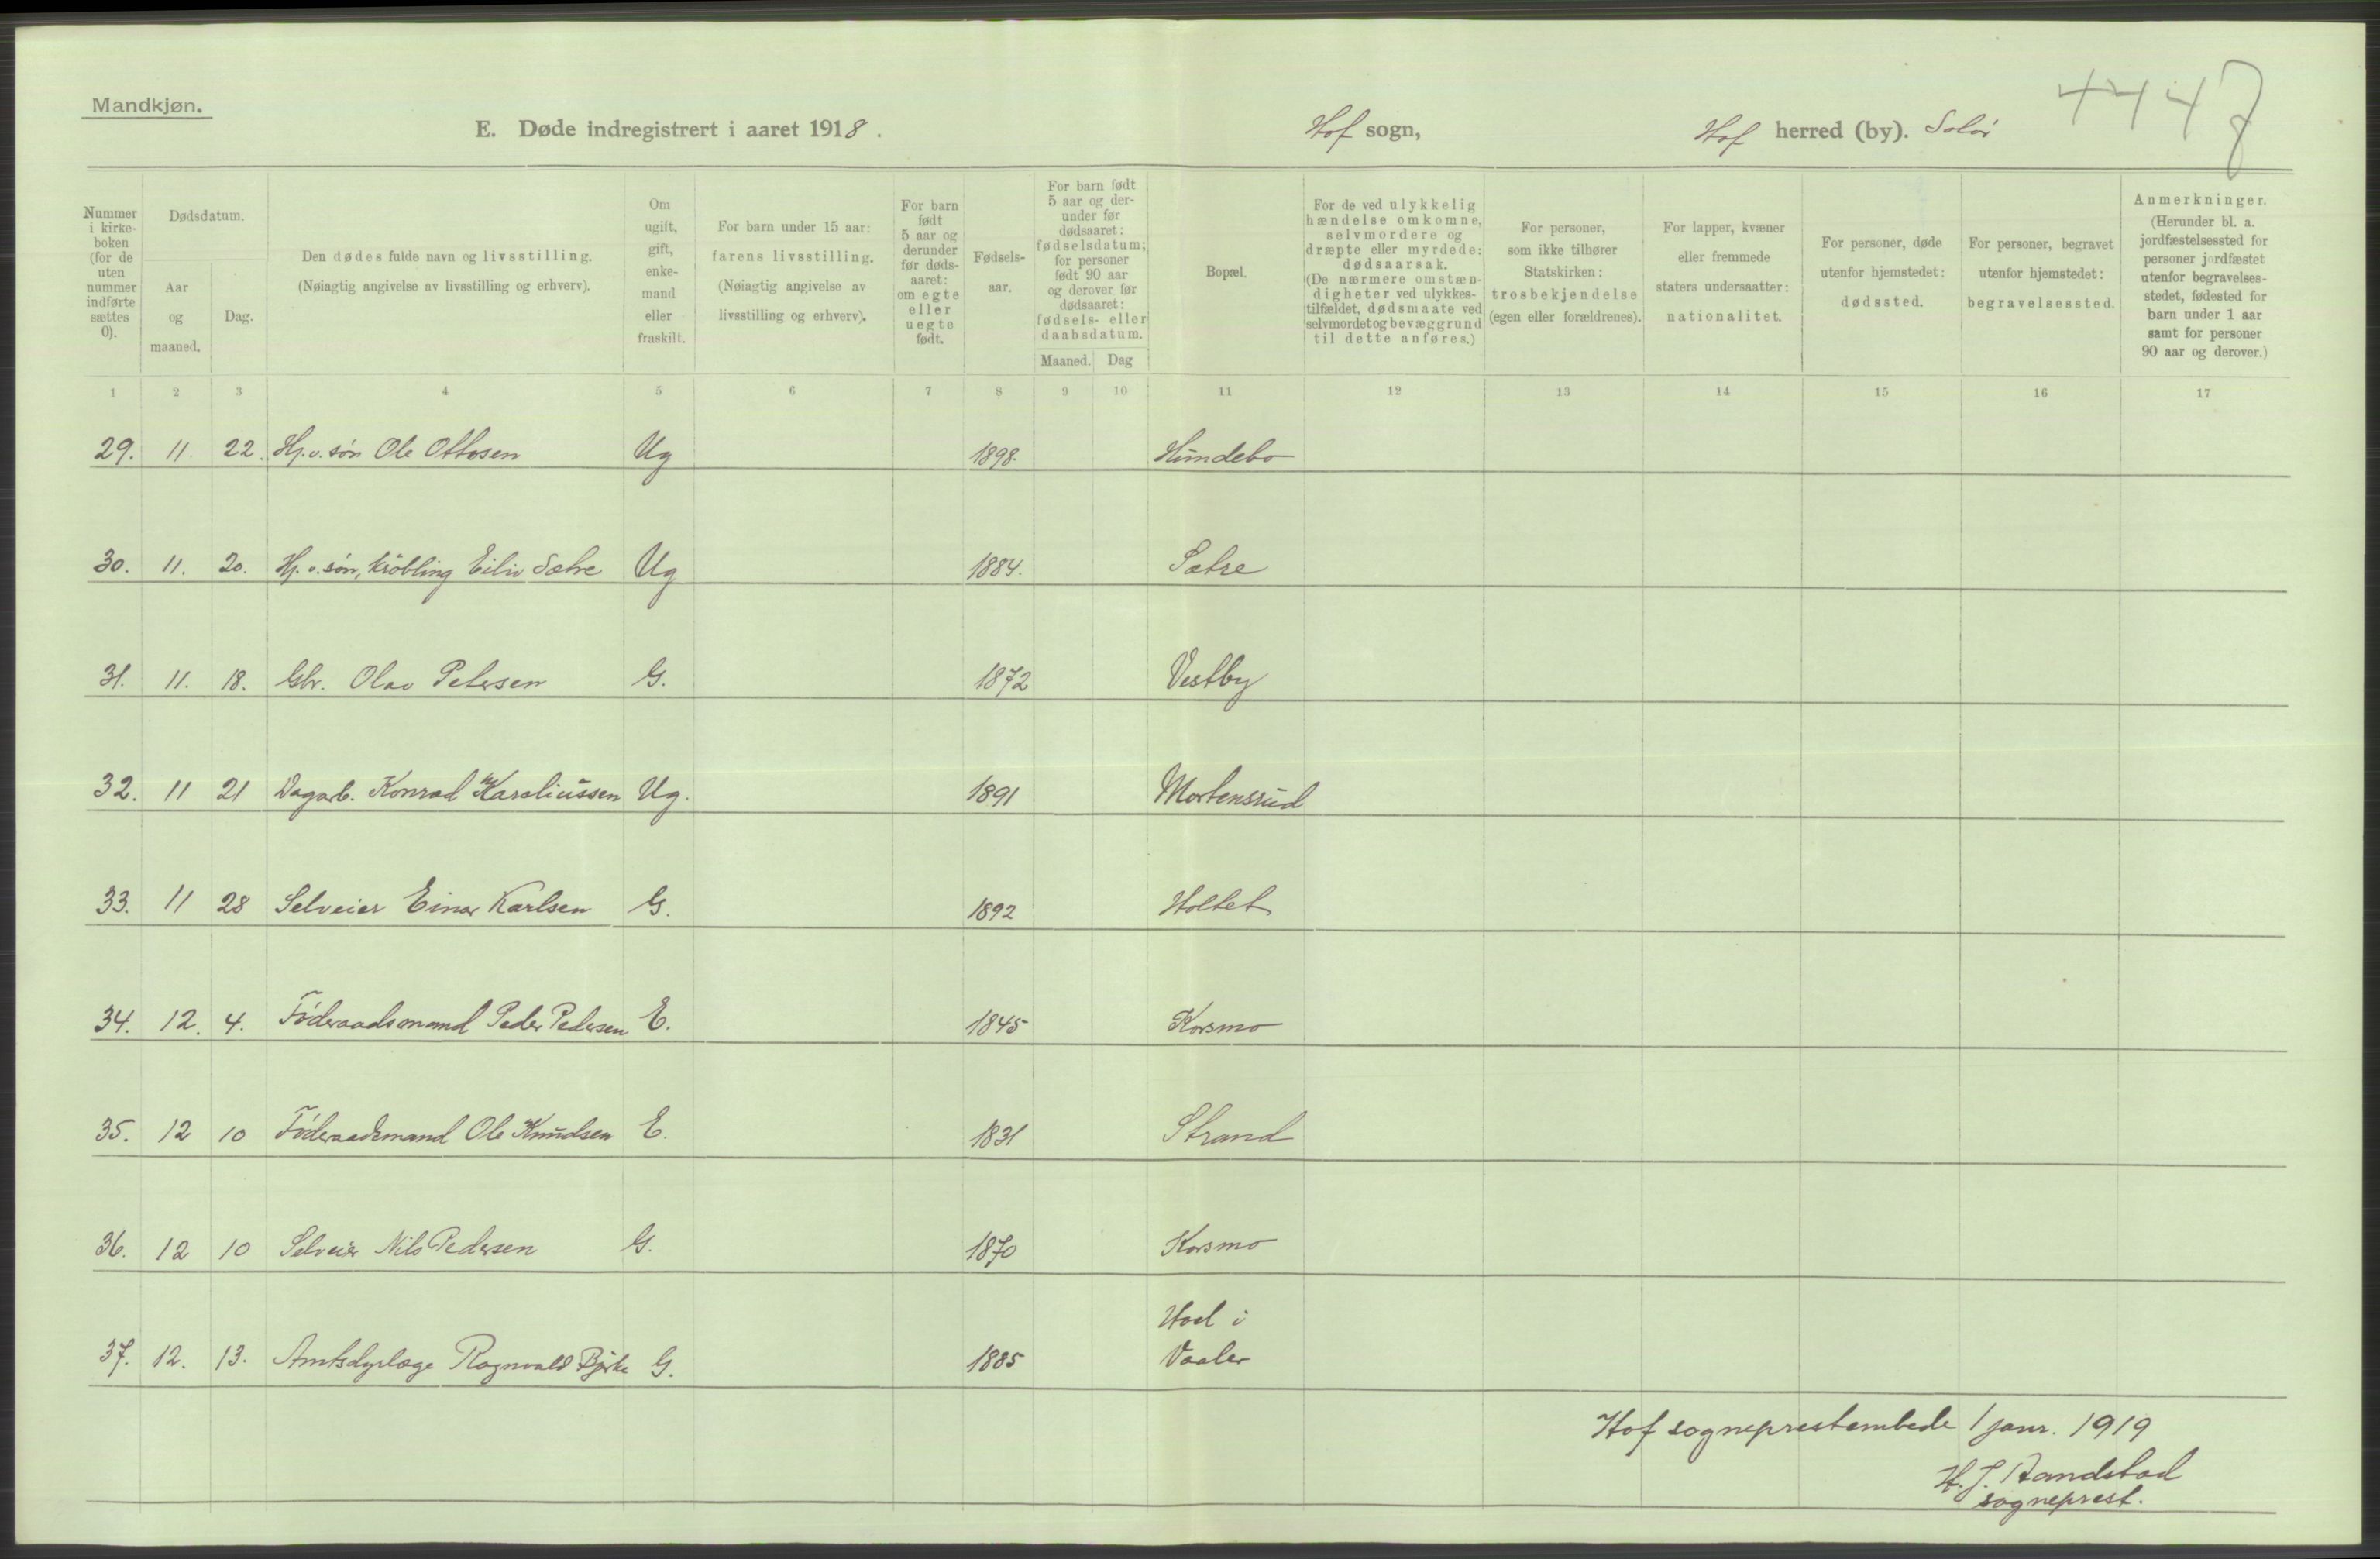 Mandkjøn.
E. Døde indregistrert i aaret 1918.
Hof sogn,
Hof herred (by). Solør
4448
Nummer i kirke-boken (for de uten nummer indførte sættes 0).
Dødsdatum.
Aar og maaned.
Dag.
Den dødes fulde navn og livsstilling.
(Nøiagtig angivelse av livsstilling og erhverv).
Om ugift, gift, enke-mand eller fraskilt.
For barn under 15 aar: farens livsstilling. (Nøiagtig angivelse av livsstilling og erhverv).
For barn født 5 aar og derunder før døds-aaret: om egte eller uegte født.
Fødsels-aar.
For barn født 5 aar og der-under før dødsaaret: fødselsdatum; for personer født 90 aar og derover før dødsaaret: fødsels- eller daabsdatum.
Maaned. Dag
Bopæl.
For de ved ulykkelig hændelse omkomne, selvmordere og dræpte eller myrdede: dødsaarsak. (De nærmere omstæn-digheter ved ulykkes-tilfældet, dødsmaate ved selvmordet og bevæggrund til dette anføres.)
For personer, som ikke tilhører Statskirken: trosbekjendelse (egen eller forældrenes).
For lapper, kvæner eller fremmede staters undersaatter: nationalitet.
For personer, døde utenfor hjemstedet: dødssted.
For personer, begravet utenfor hjemstedet: begravelsessted.
Anmerkninger. (Herunder bl. a. jordfæstelsessted for personer jordfæstet utenfor begravelses-stedet, fødested for barn under 1 aar samt for personer 90 aar og derover.)
1 2 3 4 5 6 7 8 9 10 11 12 13 14 15 16 17
29. 11. 22. Hj.v. søn Ole Ottosen Ug 1898. Hundebo
30. 11. 20. Hj.v. søn, krøbling Eiliv Sætre Ug 1884. Sætre
31. 11. 18. Gbr. Olav Petersen G. 1872 Vestby
32. 11 21 Dagarb. Konrad Kareliussen Ug. 1891 Mortensrud
33. 11 28 Selveier Einar Karlsen G. 1892 Holtet
34. 12. 4. Føderaadsmand Peder Pedersen E. 1845 Korsmo
35. 12 10 Føderaadsmand Ole Knudsen E. 1831 Strand
36. 12 10 Selveier Nils Pedersen G. 1870 Korsmo
37. 12. 13. Amtsdyrlæge Ragnvald Bjørke G. 1885 Hoel i Vaaler
Hof sogneprestembede 1 janr. 1919
H. J. Sandstad
sogneprest.